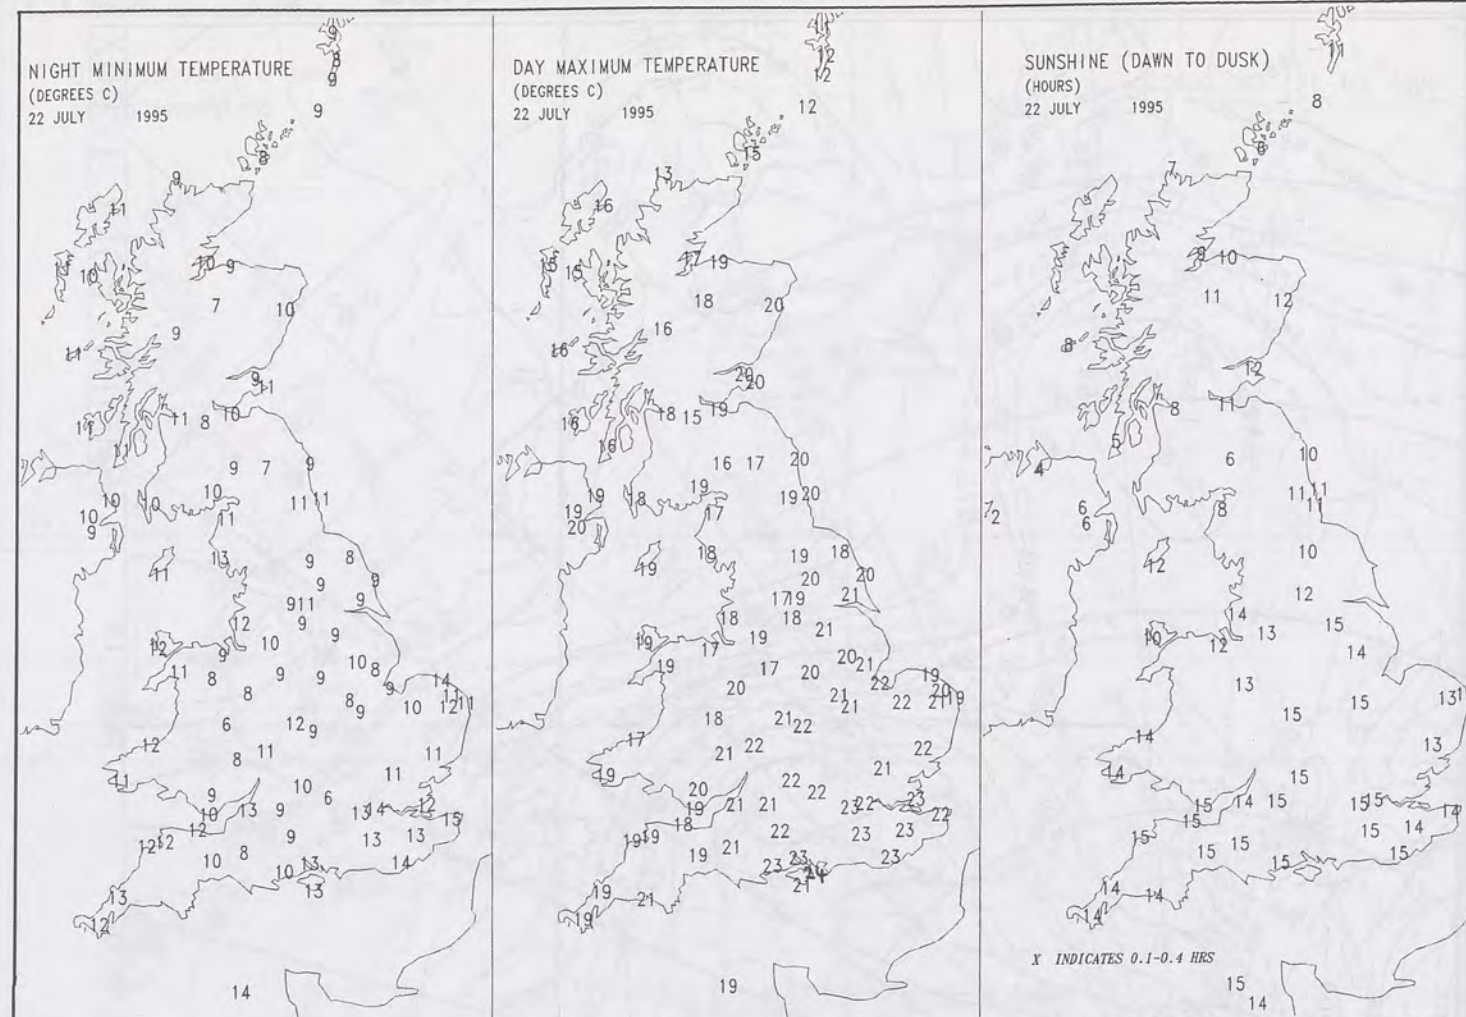 NIGHT MINIMUM TEMPERATURE
(DEGREES C)
22 JULY 1995
9
8
9
9
8
9
11
10
10
9
7
10
9
11
9
11
11
8
10
11
11
9
7
9
10
10
10
11
11
10
9
11
13
9
8
11
9
9
9
11
9
12
9
9
12
10
9
10
8
11
8
9
9
14
8
8
9
11
11
12
10
6
12
9
12
8
11
11
11
11
9
10
6
10
13
9
13
14
12
15
12
12
12
9
13
13
10
8
13
14
10
13
13
12
14
DAY MAXIMUM TEMPERATURE
(DEGREES C)
22 JULY 1995
11
12
12
12
15
13
16
15
17
19
18
20
16
16
20
20
18
15
19
16
16
16
17
20
19
18
19
19
20
19
17
20
18
19
18
19
20
20
17
19
21
18
18
21
19
19
17
20
21
19
17
20
19
20
21
22
20
21
19
18
21
22
21
22
17
21
22
22
19
22
21
20
22
19
21
21
23
22
23
22
18
19
19
22
23
23
19
21
23
23
23
24
21
19
21
19
19
SUNSHINE (DAWN TO DUSK)
(HOURS)
22 JULY 1995
11
8
8
7
9
10
11
12
8
12
8
11
5
4
6
10
11
11
11
6
6
2
8
12
10
12
14
13
15
10
12
14
13
15
15
13
14
13
14
15
15
14
15
15
15
14
15
15
15
14
15
15
15
15
14
14
14
X INDICATES 0.1-0.4 HRS
15
14